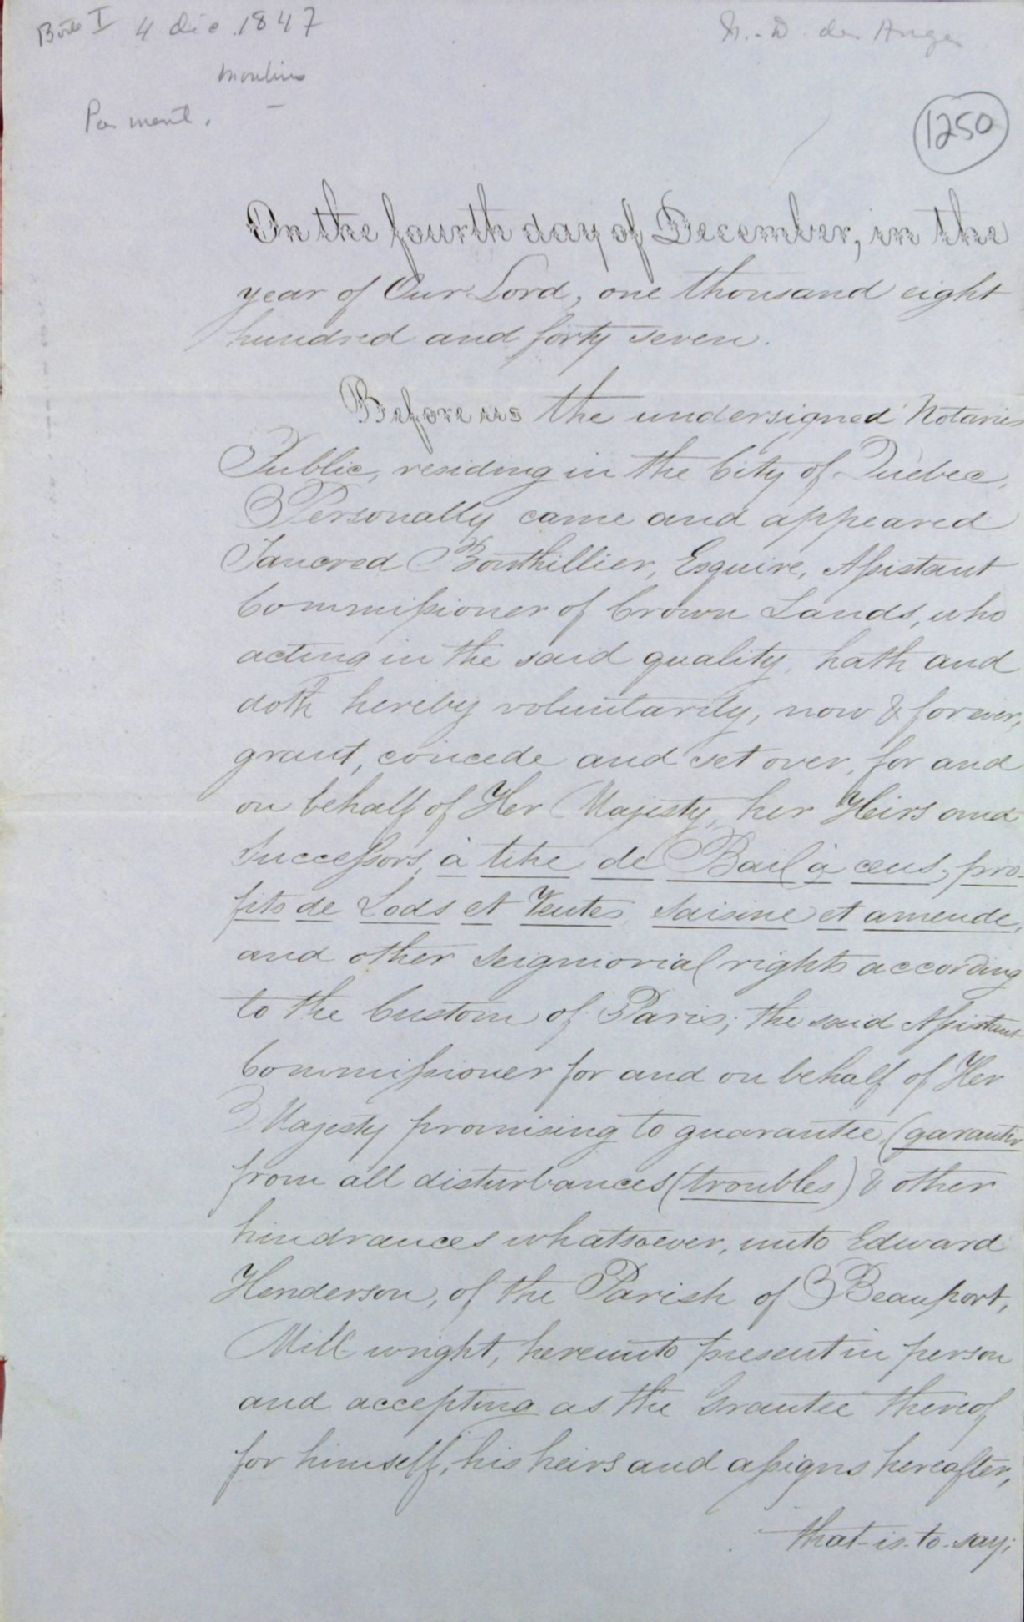 Boîte I 4 déc. 1847
N.-D. des Anges
moulins
1250
On the fourth day of December, in the
year of Our Lord, one thousand eight
hundred and forty seven.
Before us the undersigned Notaries
Public, residing in the City of Quebec,
Personally came and appeared
Tancred Bouthillier, Esquire, Assistant
Commissioner of Crown Lands, who
acting in the said quality, hath and
doth hereby voluntarily, now & forever,
grant, concede and set over, for and
on behalf of Her Majesty, her Heirs and
Successors, à titre de Bail à cens, pro-
fits de Lods et Ventes, saisine et amende,
and other seigniorial rights according
to the Custom of Paris; the said Assistant
Commissioner for and on behalf of Her
Majesty promising to guarantee (garantir
from all disturbances (troubles) & other
hindrances whatsoever, unto Edward
Henderson, of the Parish of Beauport,
Mill wright, hereunto present in person
and accepting as the Grantee thereof
for himself, his heirs and assigns hereafter,
that-is-to-say;